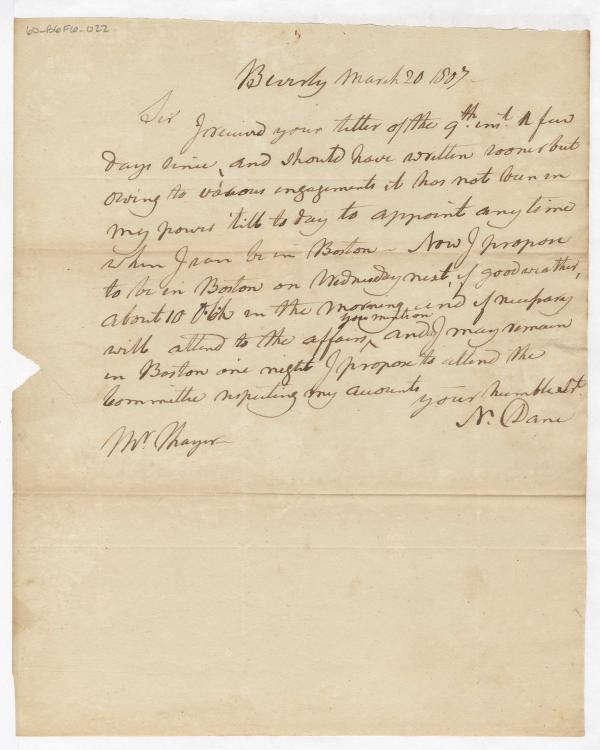 60-B6F6-022
Beverly March 20 1807
Sir I received your letter of the 9th inst. a few
days since, and should have written sooner but
owing to various engagements it has not been in
my power 'till to day to appoint any time
when I can be in Boston – Now I propose
to be in Boston on Wednesday next, if good weather,
about 10 oclk in the morning, and if necessary
you mention
will attend to the affairs ^ and I may remain
in Boston one night I propose to attend the
Committee respecting my accounts
your humble Svt.
N. Dane
Mr. Thayer